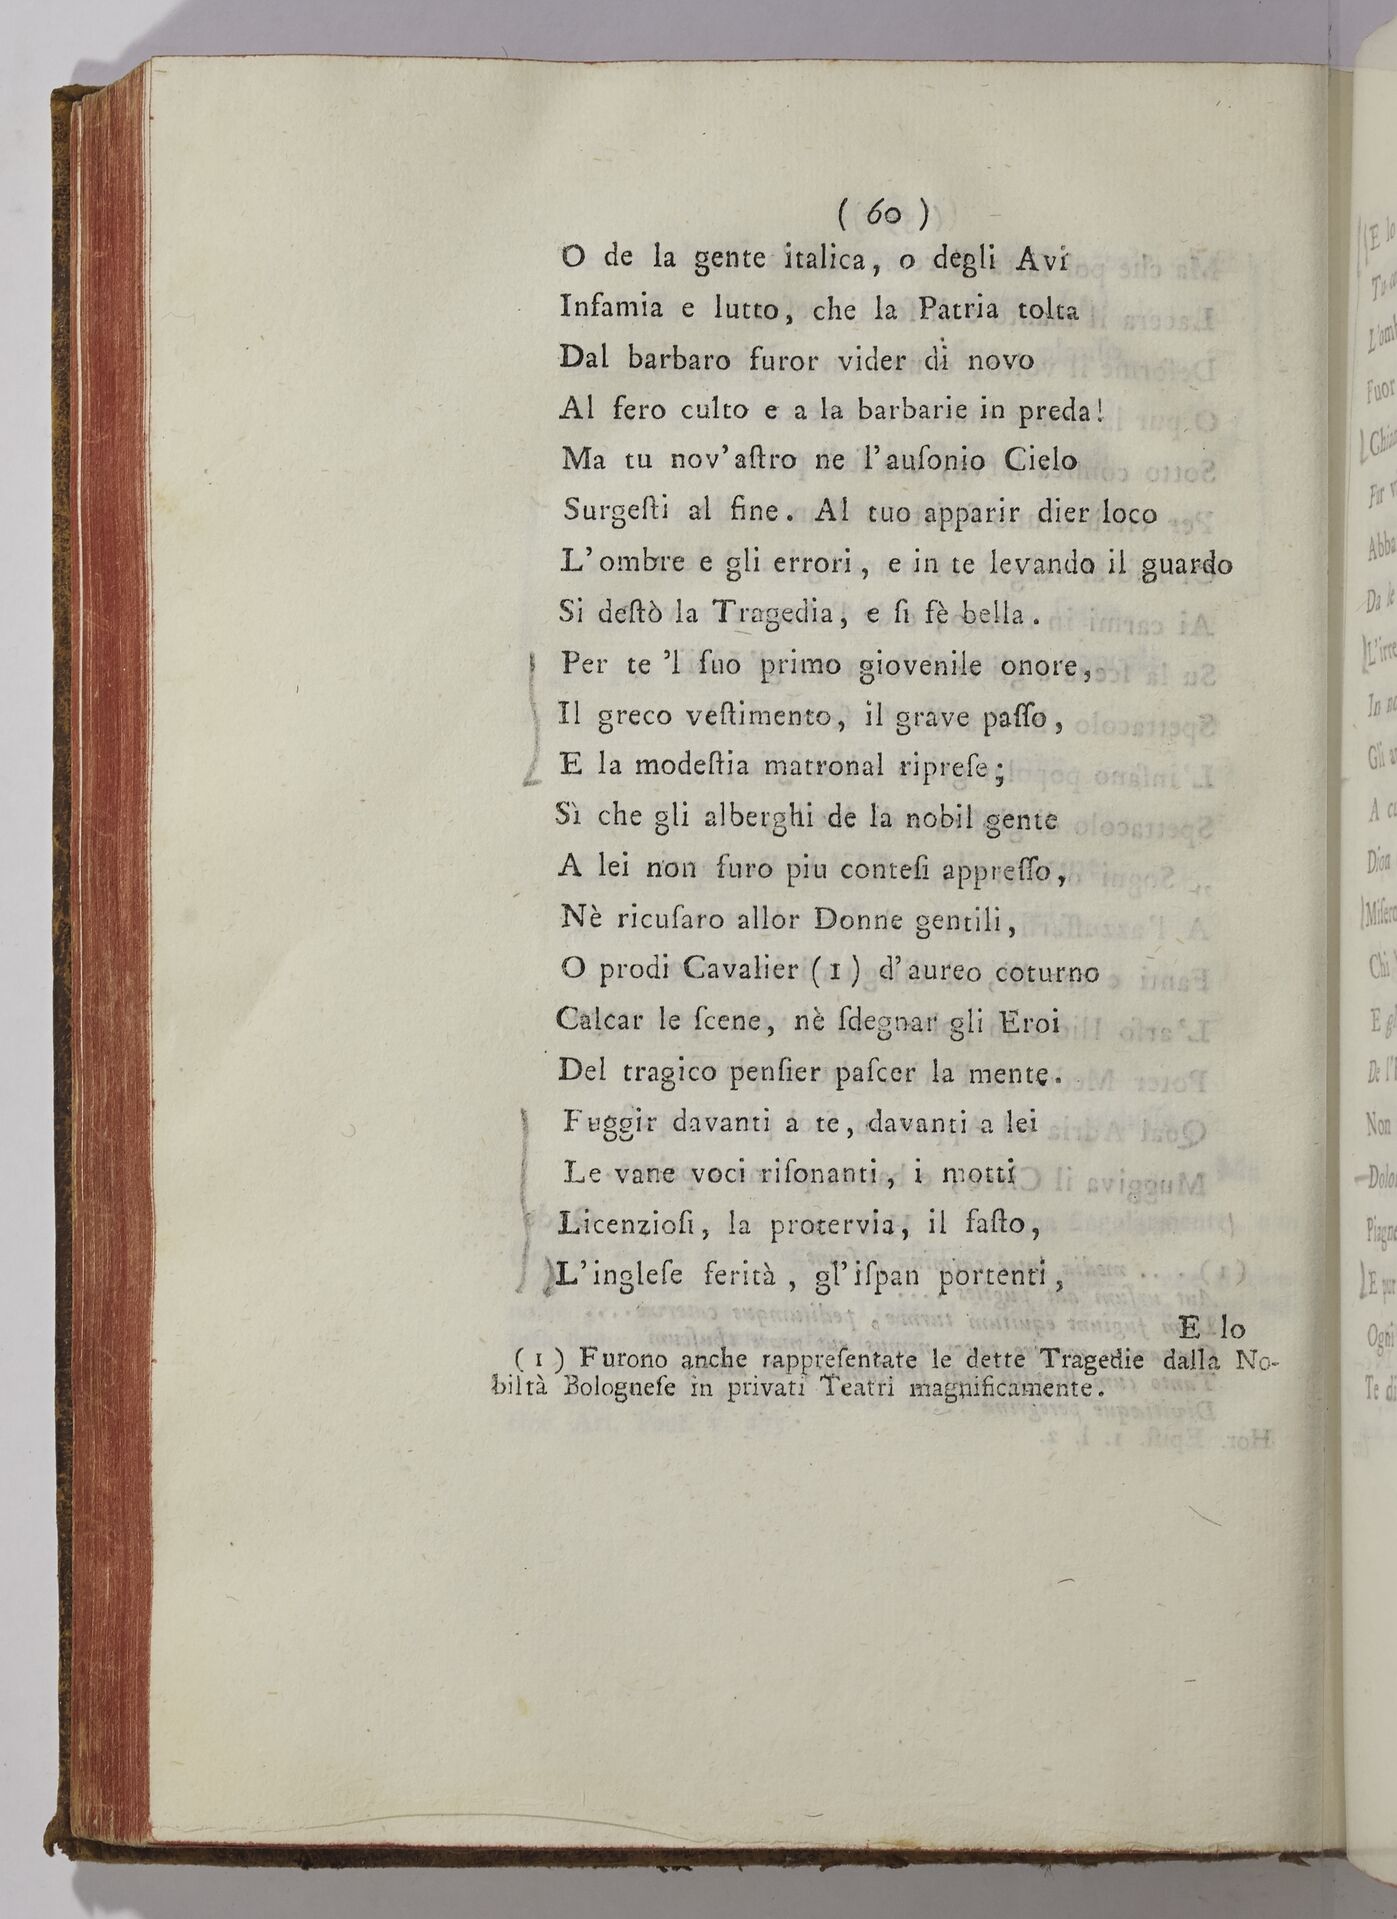 ( 60 )
O de la gente italica, o degli Avi
Infamia e lutto, che la Patria tolta
Dal barbaro furor vider di novo
Al fero culto e a la barbarie in preda!
Ma tu nov'aſtro ne l'auſonio Cielo
Surgeſti al fine. Al tuo apparir dier loco
L'ombre e gli errori, e in te levando il guardo
Si deſtò la Tragedia, e ſi fè bella.
Per te 'l ſuo primo giovenile onore,
Il greco veſtimento, il grave paſſo,
E la modeſtia matronal ripreſe;
Sì che gli alberghi de la nobil gente
A lei non furo piu conteſi appreſſo,
Nè ricuſaro allor Donne gentili,
O prodi Cavalier (1) d'aureo coturno
Calcar le ſcene, nè ſdegnar gli Eroi
Del tragico penſier paſcer la mente.
Fuggir davanti a te, davanti a lei
Le vane voci riſonanti, i motti
Licenzioſi, la protervia, il faſto,
L'ingleſe ferità, gl'iſpan portenti,
E lo
(1) Furono anche rappreſentate le dette Tragedie dalla No-
biltà Bologneſe in privati Teatri magnificamente.